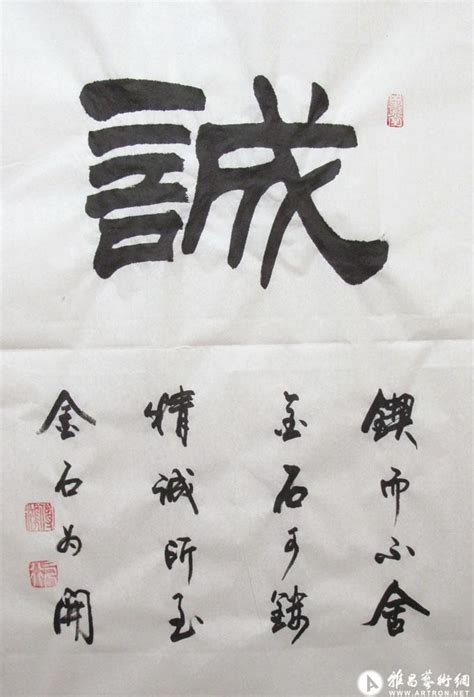 誠
鍥而不舍
金石可鏤
精誠所至
金石为開
雅昌藝術網
WWW.ARTRON.NET